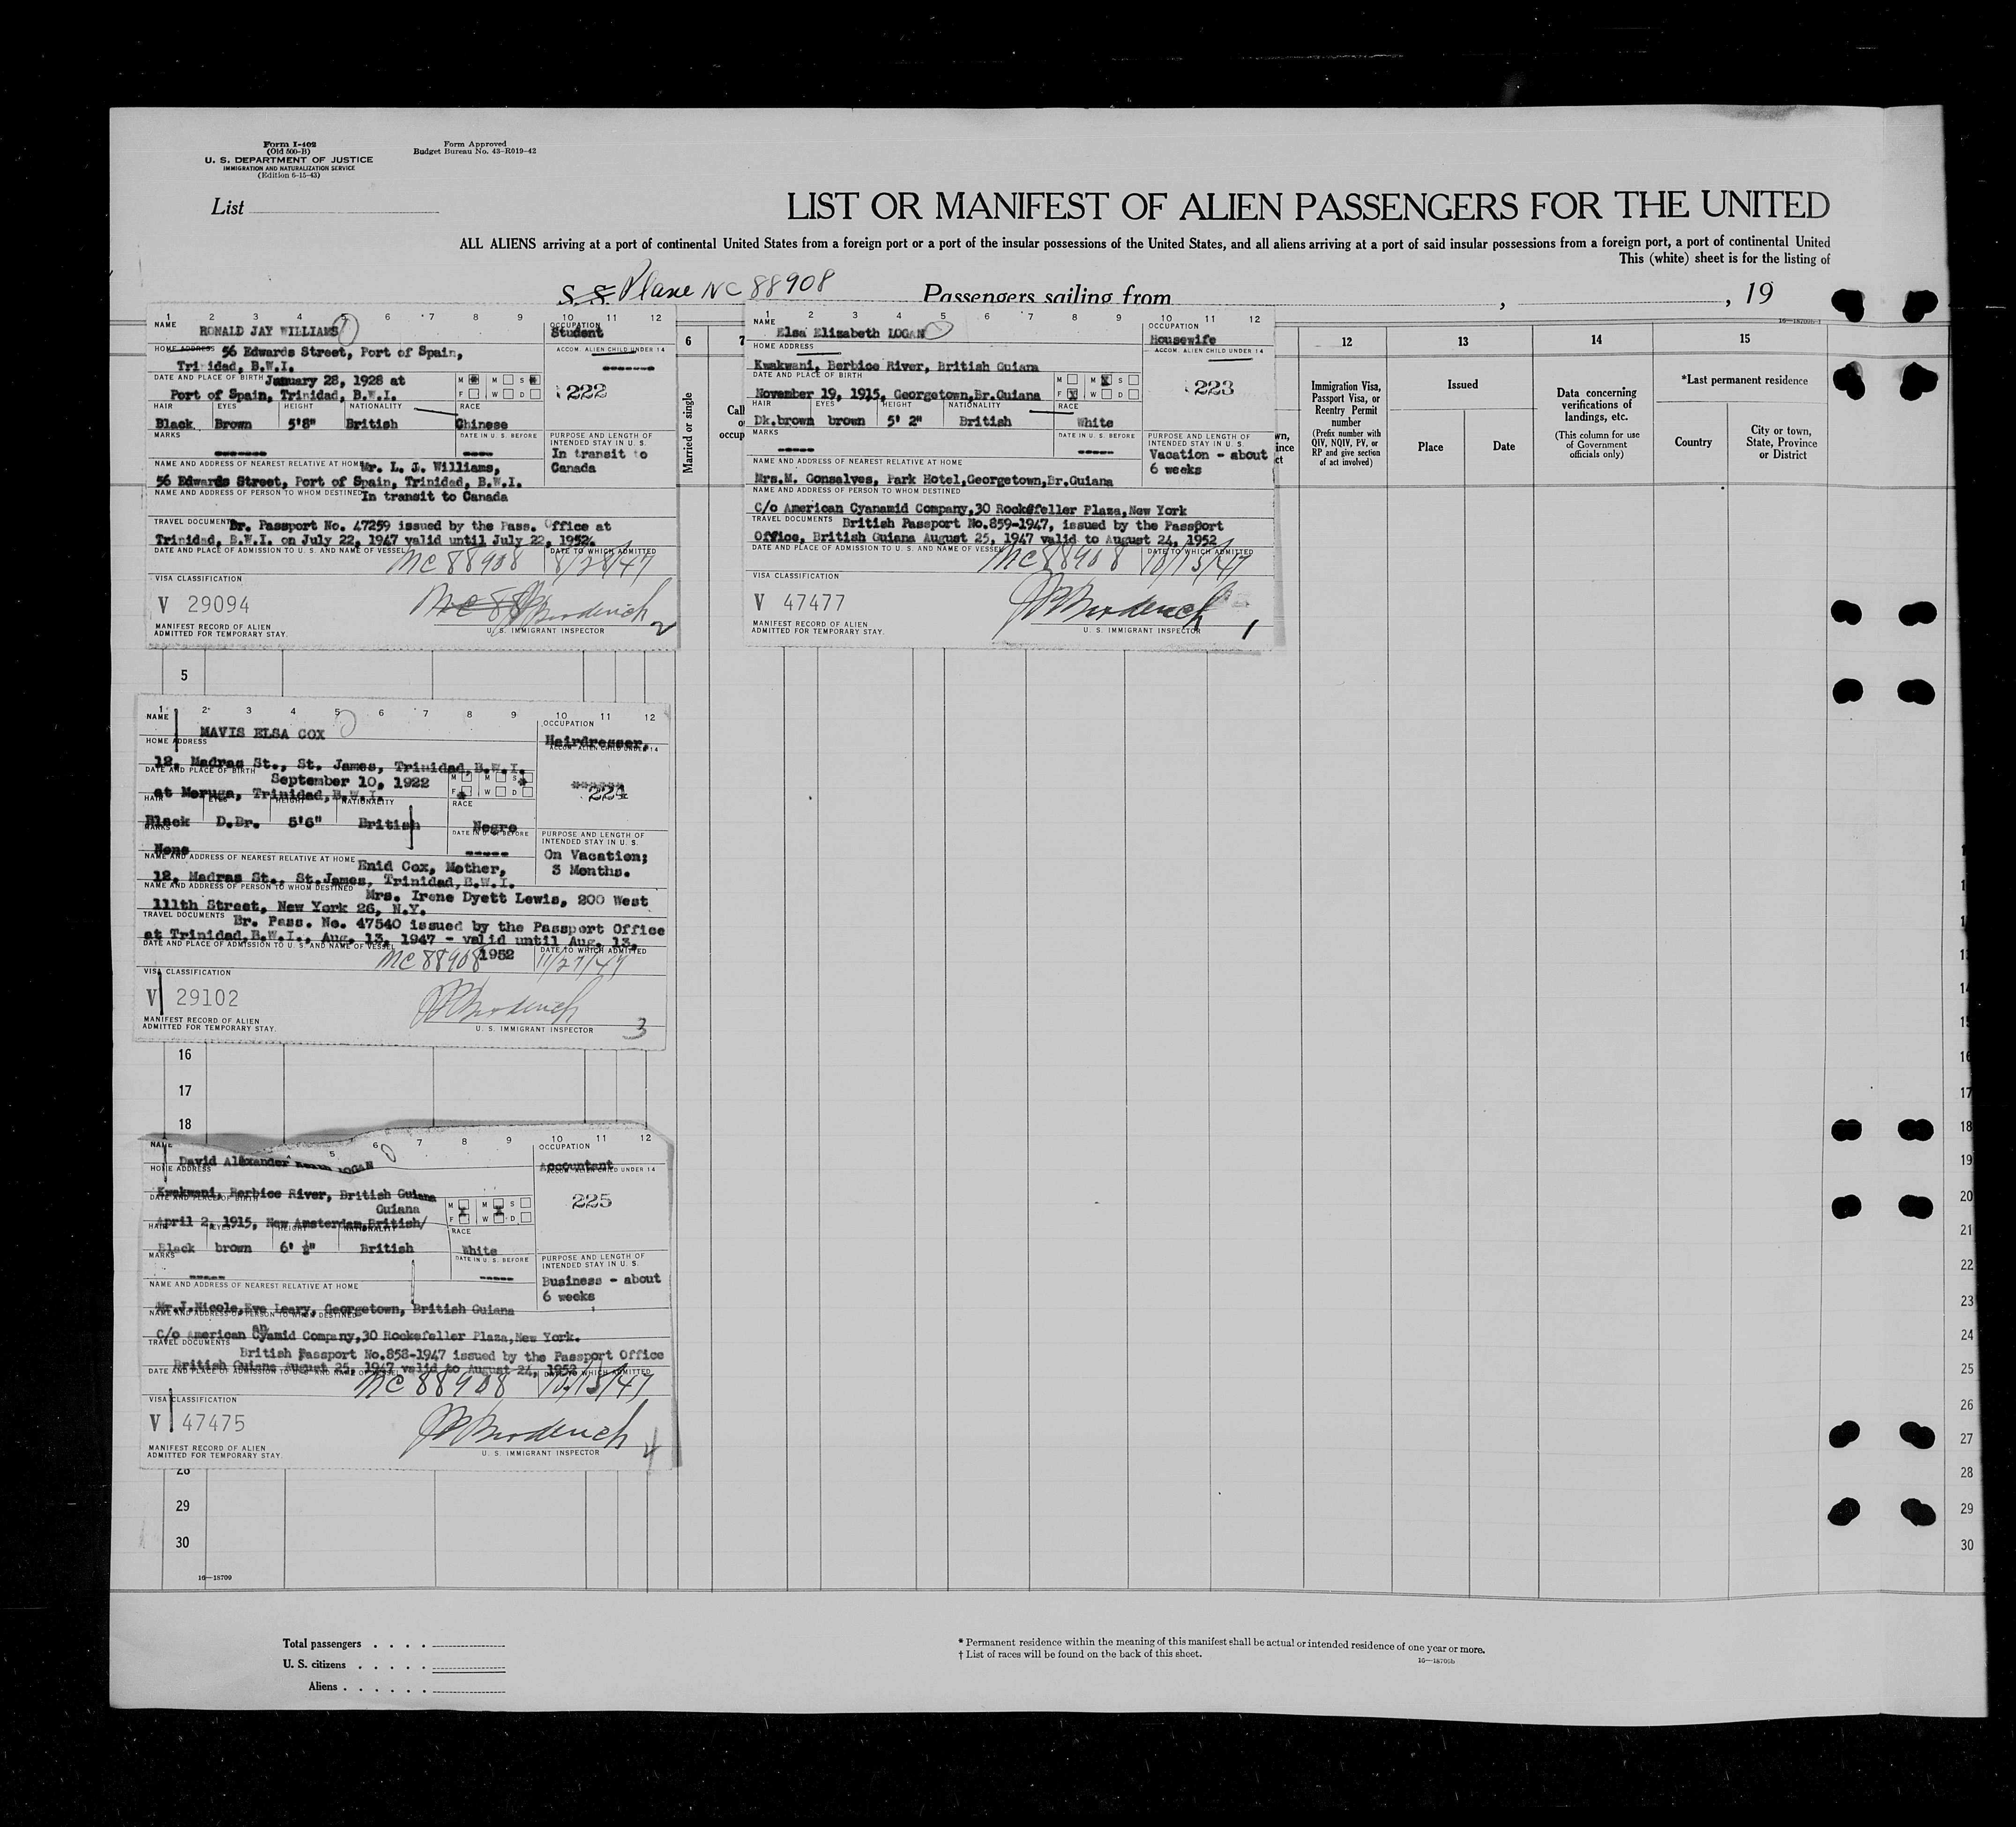 Form I-402
(Old 500-B)
U. S. DEPARTMENT OF JUSTICE
IMMIGRATION AND NATURALIZATION SERVICE
(Edition 6-15-43)
Form Approved
Budget Bureau No. 43-R019-42
List
LIST OR MANIFEST OF ALIEN PASSENGERS FOR THE UNITED
ALL ALIENS arriving at a port of continental United States from a foreign port or a port of the insular possessions of the United States, and all aliens arriving at a port of said insular possessions from a foreign port, a port of continental United
This (white) sheet is for the listing of
S. S. Plane NC 88908 Passengers sailing from , , 19
16—18709b-1
1 2 3 4 5 6 7 8 9 10 11 12
NAME RONALD JAY WILLIAMS
OCCUPATION
Student
HOME ADDRESS 56 Edwards Street, Port of Spain,
Trinidad, B.W.I.
ACCOM. ALIEN CHILD UNDER 14
-------
DATE AND PLACE OF BIRTH January 28, 1928 at
Port of Spain, Trinidad, B.W.I.
M M S
F W D
222
HAIR EYES HEIGHT NATIONALITY RACE
Black Brown 5'8" British Chinese
MARKS
DATE IN U. S. BEFORE
PURPOSE AND LENGTH OF
INTENDED STAY IN U. S.
In transit to
Canada
NAME AND ADDRESS OF NEAREST RELATIVE AT HOME Mr. L. J. Williams,
56 Edwards Street, Port of Spain, Trinidad, B.W.I.
NAME AND ADDRESS OF PERSON TO WHOM DESTINED In transit to Canada
TRAVEL DOCUMENTS Br. Passport No. 47259 issued by the Pass. Office at
Trinidad, B.W.I. on July 22, 1947 valid until July 22, 1952.
DATE AND PLACE OF ADMISSION TO U. S. AND NAME OF VESSEL
DATE TO WHICH ADMITTED
NC 88908 8/28/47
VISA CLASSIFICATION
V 29094
MANIFEST RECORD OF ALIEN
ADMITTED FOR TEMPORARY STAY.
U. S. IMMIGRANT INSPECTOR
2
1 2 3 4 5 6 7 8 9 10 11 12
NAME Elsa Elizabeth LOGAN
OCCUPATION
Housewife
HOME ADDRESS
ACCOM. ALIEN CHILD UNDER 14
Kwakwani, Berbice River, British Guiana
DATE AND PLACE OF BIRTH
November 19, 1915, Georgetown,Br.Guiana
M M S
F W D
223
HAIR EYES HEIGHT NATIONALITY RACE
Dk.brown brown 5' 2" British White
MARKS
-----
DATE IN U. S. BEFORE
-----
PURPOSE AND LENGTH OF
INTENDED STAY IN U. S.
Vacation - about
6 weeks
NAME AND ADDRESS OF NEAREST RELATIVE AT HOME
Mrs.M. Gonsalves, Park Hotel,Georgetown,Br.Guiana
NAME AND ADDRESS OF PERSON TO WHOM DESTINED
C/o American Cyanamid Company,30 Rockefeller Plaza,New York
TRAVEL DOCUMENTS British Passport No.859-1947, issued by the Passport
Office, British Guiana August 25, 1947 valid to August 24, 1952
DATE AND PLACE OF ADMISSION TO U. S. AND NAME OF VESSEL
DATE TO WHICH ADMITTED
NC 88908 10/13/47
VISA CLASSIFICATION
V 47477
MANIFEST RECORD OF ALIEN
ADMITTED FOR TEMPORARY STAY.
U. S. IMMIGRANT INSPECTOR
1
6
Married or single
7
12
Immigration Visa,
Passport Visa, or
Reentry Permit
number
(Prefix number with
QIV, NQIV, PV, or
RP and give section
of act involved)
13
Issued
Place
Date
14
Data concerning
verifications of
landings, etc.
(This column for use
of Government
officials only)
15
*Last permanent residence
Country
City or town,
State, Province
or District
5
1 2 3 4 5 6 7 8 9 10 11 12
NAME
MAVIS ELSA COX
OCCUPATION
Hairdresser,
HOME ADDRESS
ACCOM. ALIEN CHILD UNDER 14
12, Madras St., St. James, Trinidad,B.W.I.
DATE AND PLACE OF BIRTH September 10, 1922
at Moruga, Trinidad,B.W.I.
M M S
F W D
224
HAIR EYES HEIGHT NATIONALITY RACE
Black D.Br. 5'6" British Negro
MARKS
None
DATE IN U. S. BEFORE
-----
PURPOSE AND LENGTH OF
INTENDED STAY IN U. S.
On Vacation;
3 Months.
NAME AND ADDRESS OF NEAREST RELATIVE AT HOME Enid Cox, Mother,
12, Madras St., St.James, Trinidad,B.W.I.
NAME AND ADDRESS OF PERSON TO WHOM DESTINED Mrs. Irene Dyett Lewis, 200 West
111th Street, New York 26, N.Y.
TRAVEL DOCUMENTS Br. Pass. No. 47540 issued by the Passport Office
at Trinidad,B.W.I., Aug. 13, 1947 - valid until Aug. 13,
1952
DATE AND PLACE OF ADMISSION TO U. S. AND NAME OF VESSEL
DATE TO WHICH ADMITTED
NC 88908 11/27/47
VISA CLASSIFICATION
V 29102
MANIFEST RECORD OF ALIEN
ADMITTED FOR TEMPORARY STAY.
U. S. IMMIGRANT INSPECTOR
3
16
17
18
5 6 7 8 9 10 11 12
NAME
David Alexander LOGAN
OCCUPATION
Accountant
HOME ADDRESS
ACCOM. ALIEN CHILD UNDER 14
Kwakwani, Berbice River, British Guiana
DATE AND PLACE OF BIRTH
Guiana
April 2, 1915, New Amsterdam,British/
M M S
F W D
225
HAIR EYES HEIGHT NATIONALITY RACE
Black brown 6' ½" British White
MARKS
-----
DATE IN U. S. BEFORE
-----
PURPOSE AND LENGTH OF
INTENDED STAY IN U. S.
Business - about
6 weeks
NAME AND ADDRESS OF NEAREST RELATIVE AT HOME
Mr.J.Nicole,Eve Leary, Georgetown, British Guiana
NAME AND ADDRESS OF PERSON TO WHOM DESTINED
C/o American Cyanamid Company,30 Rockefeller Plaza,New York.
TRAVEL DOCUMENTS
British Passport No.858-1947 issued by the Passport Office
British Guiana August 25, 1947 valid to August 24, 1952
DATE AND PLACE OF ADMISSION TO U. S. AND NAME OF VESSEL
DATE TO WHICH ADMITTED
NC 88908 10/13/47
VISA CLASSIFICATION
V 47475
MANIFEST RECORD OF ALIEN
ADMITTED FOR TEMPORARY STAY.
U. S. IMMIGRANT INSPECTOR
4
28
29
30
16—18709
14
15
16
17
18
19
20
21
22
23
24
25
26
27
28
29
30
Total passengers
U. S. citizens
Aliens
* Permanent residence within the meaning of this manifest shall be actual or intended residence of one year or more.
† List of races will be found on the back of this sheet.
16—18709b